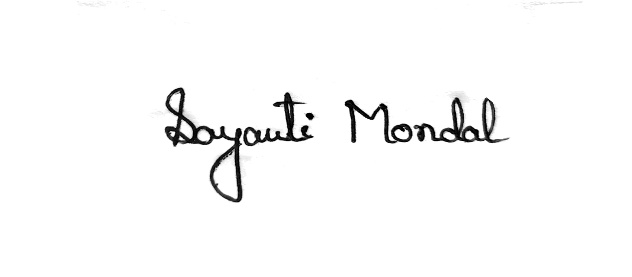 Sayanti Mondal